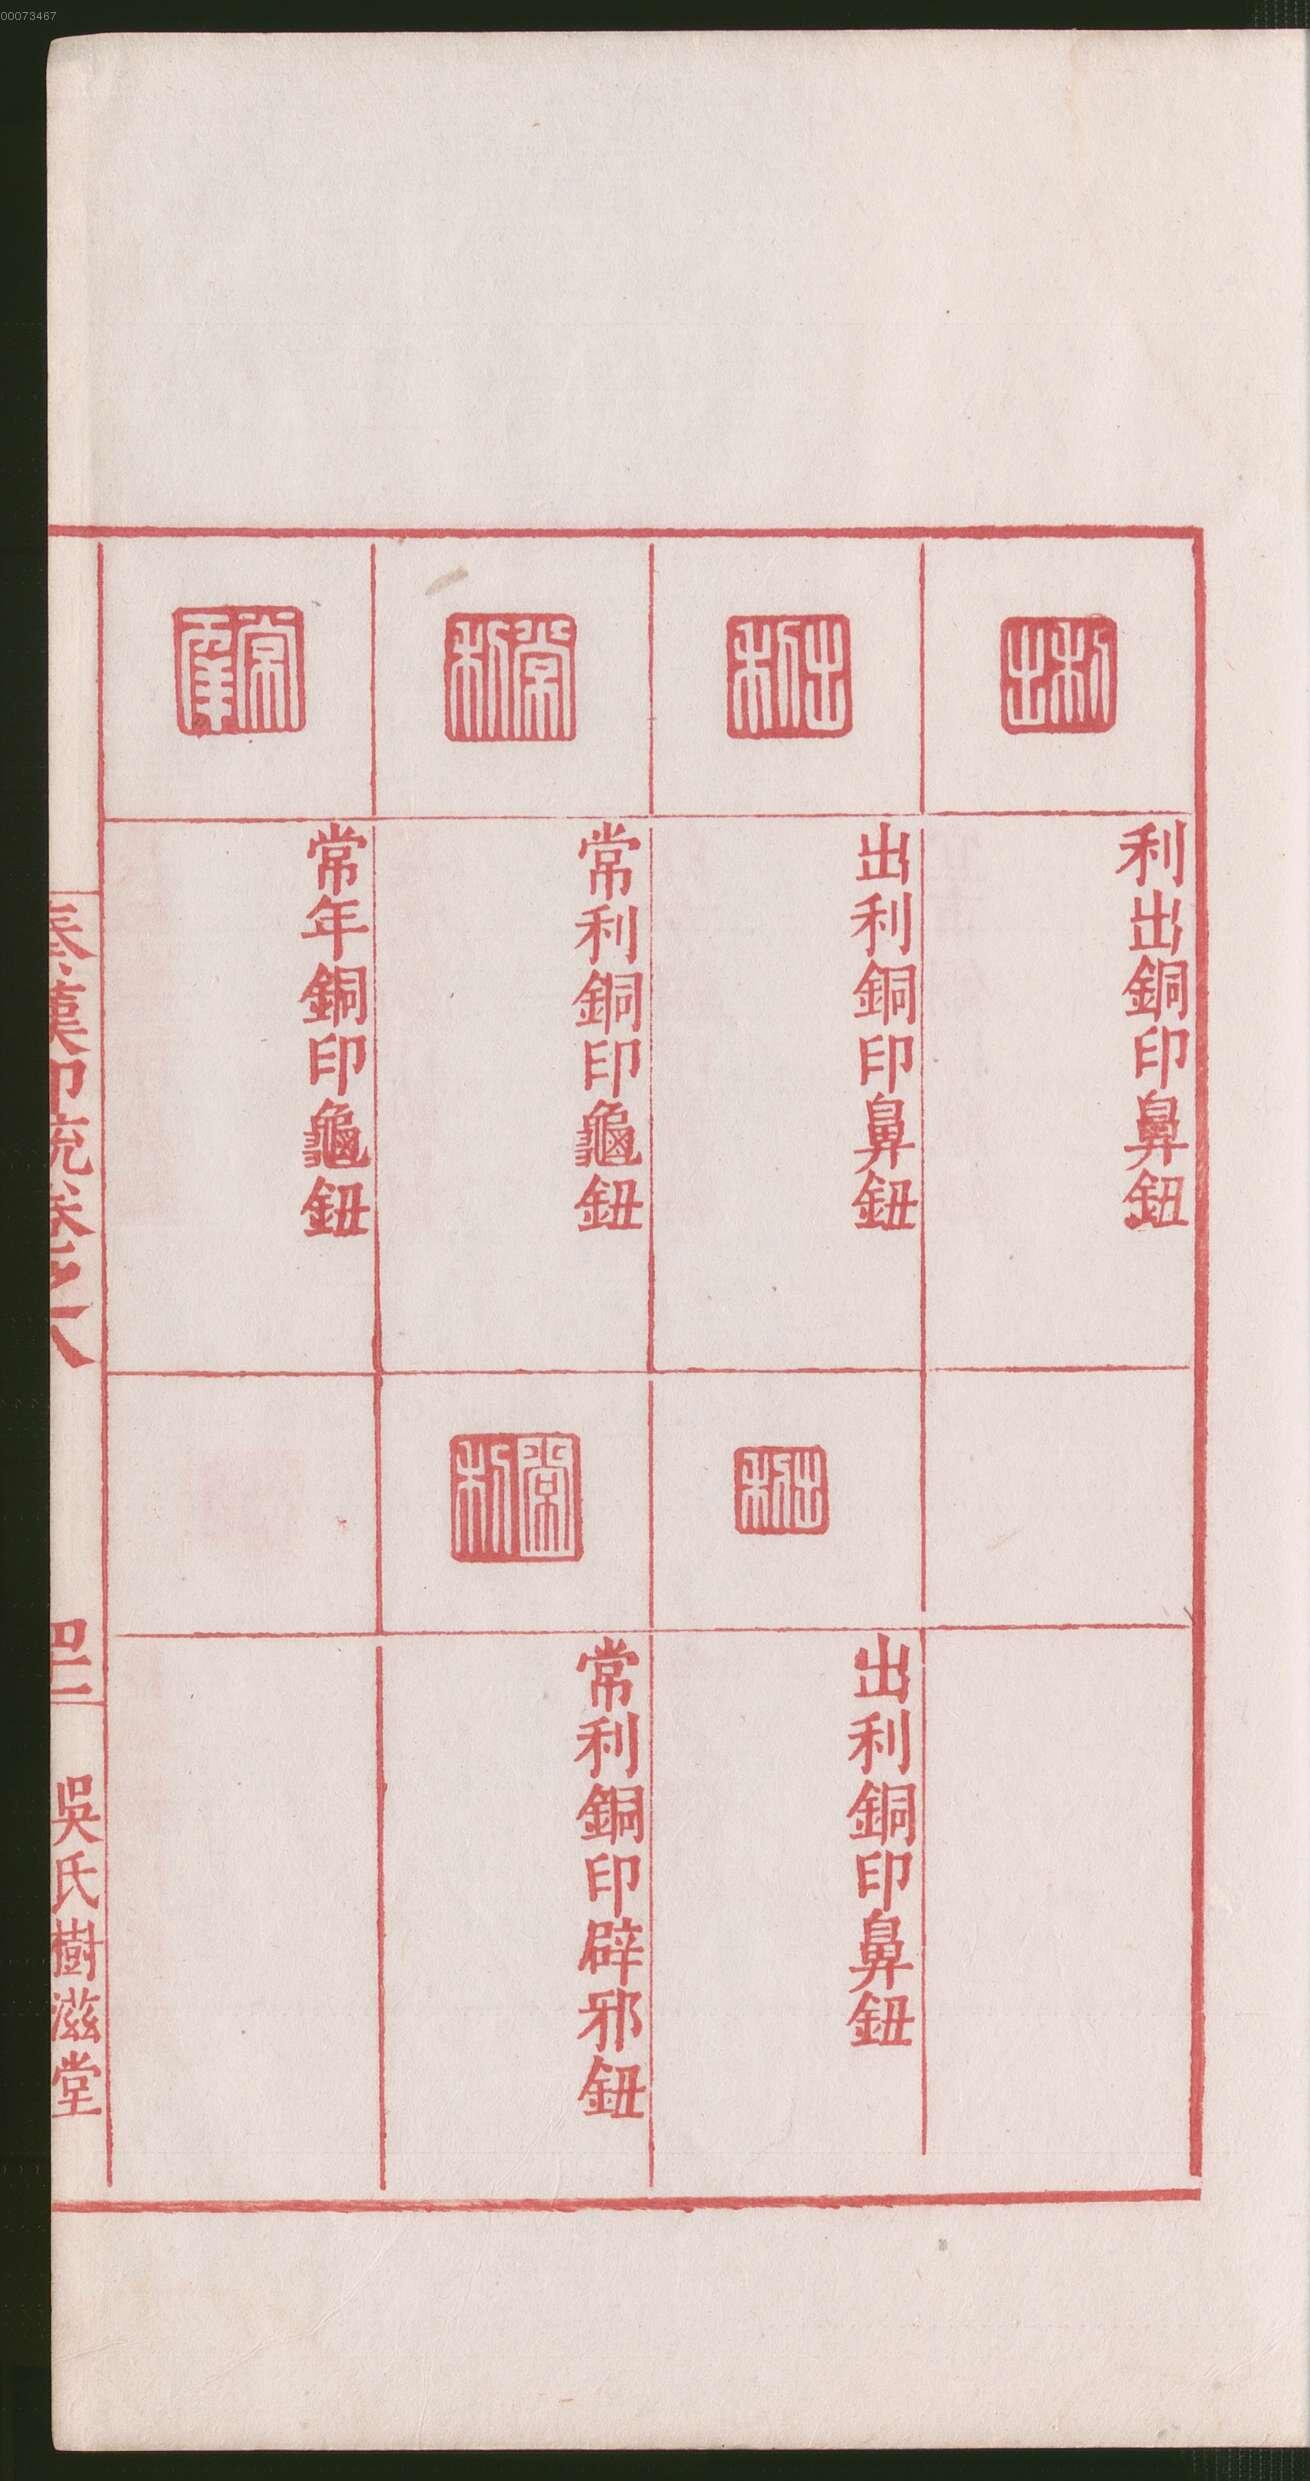 00073467
利出
利出銅印鼻鈕
出利
出利銅印鼻鈕
出利
出利銅印鼻鈕
常利
常利銅印龜鈕
常利
常利銅印辟邪鈕
常年
常年銅印龜鈕
秦漢印統卷之八
四十二
吳氏樹滋堂